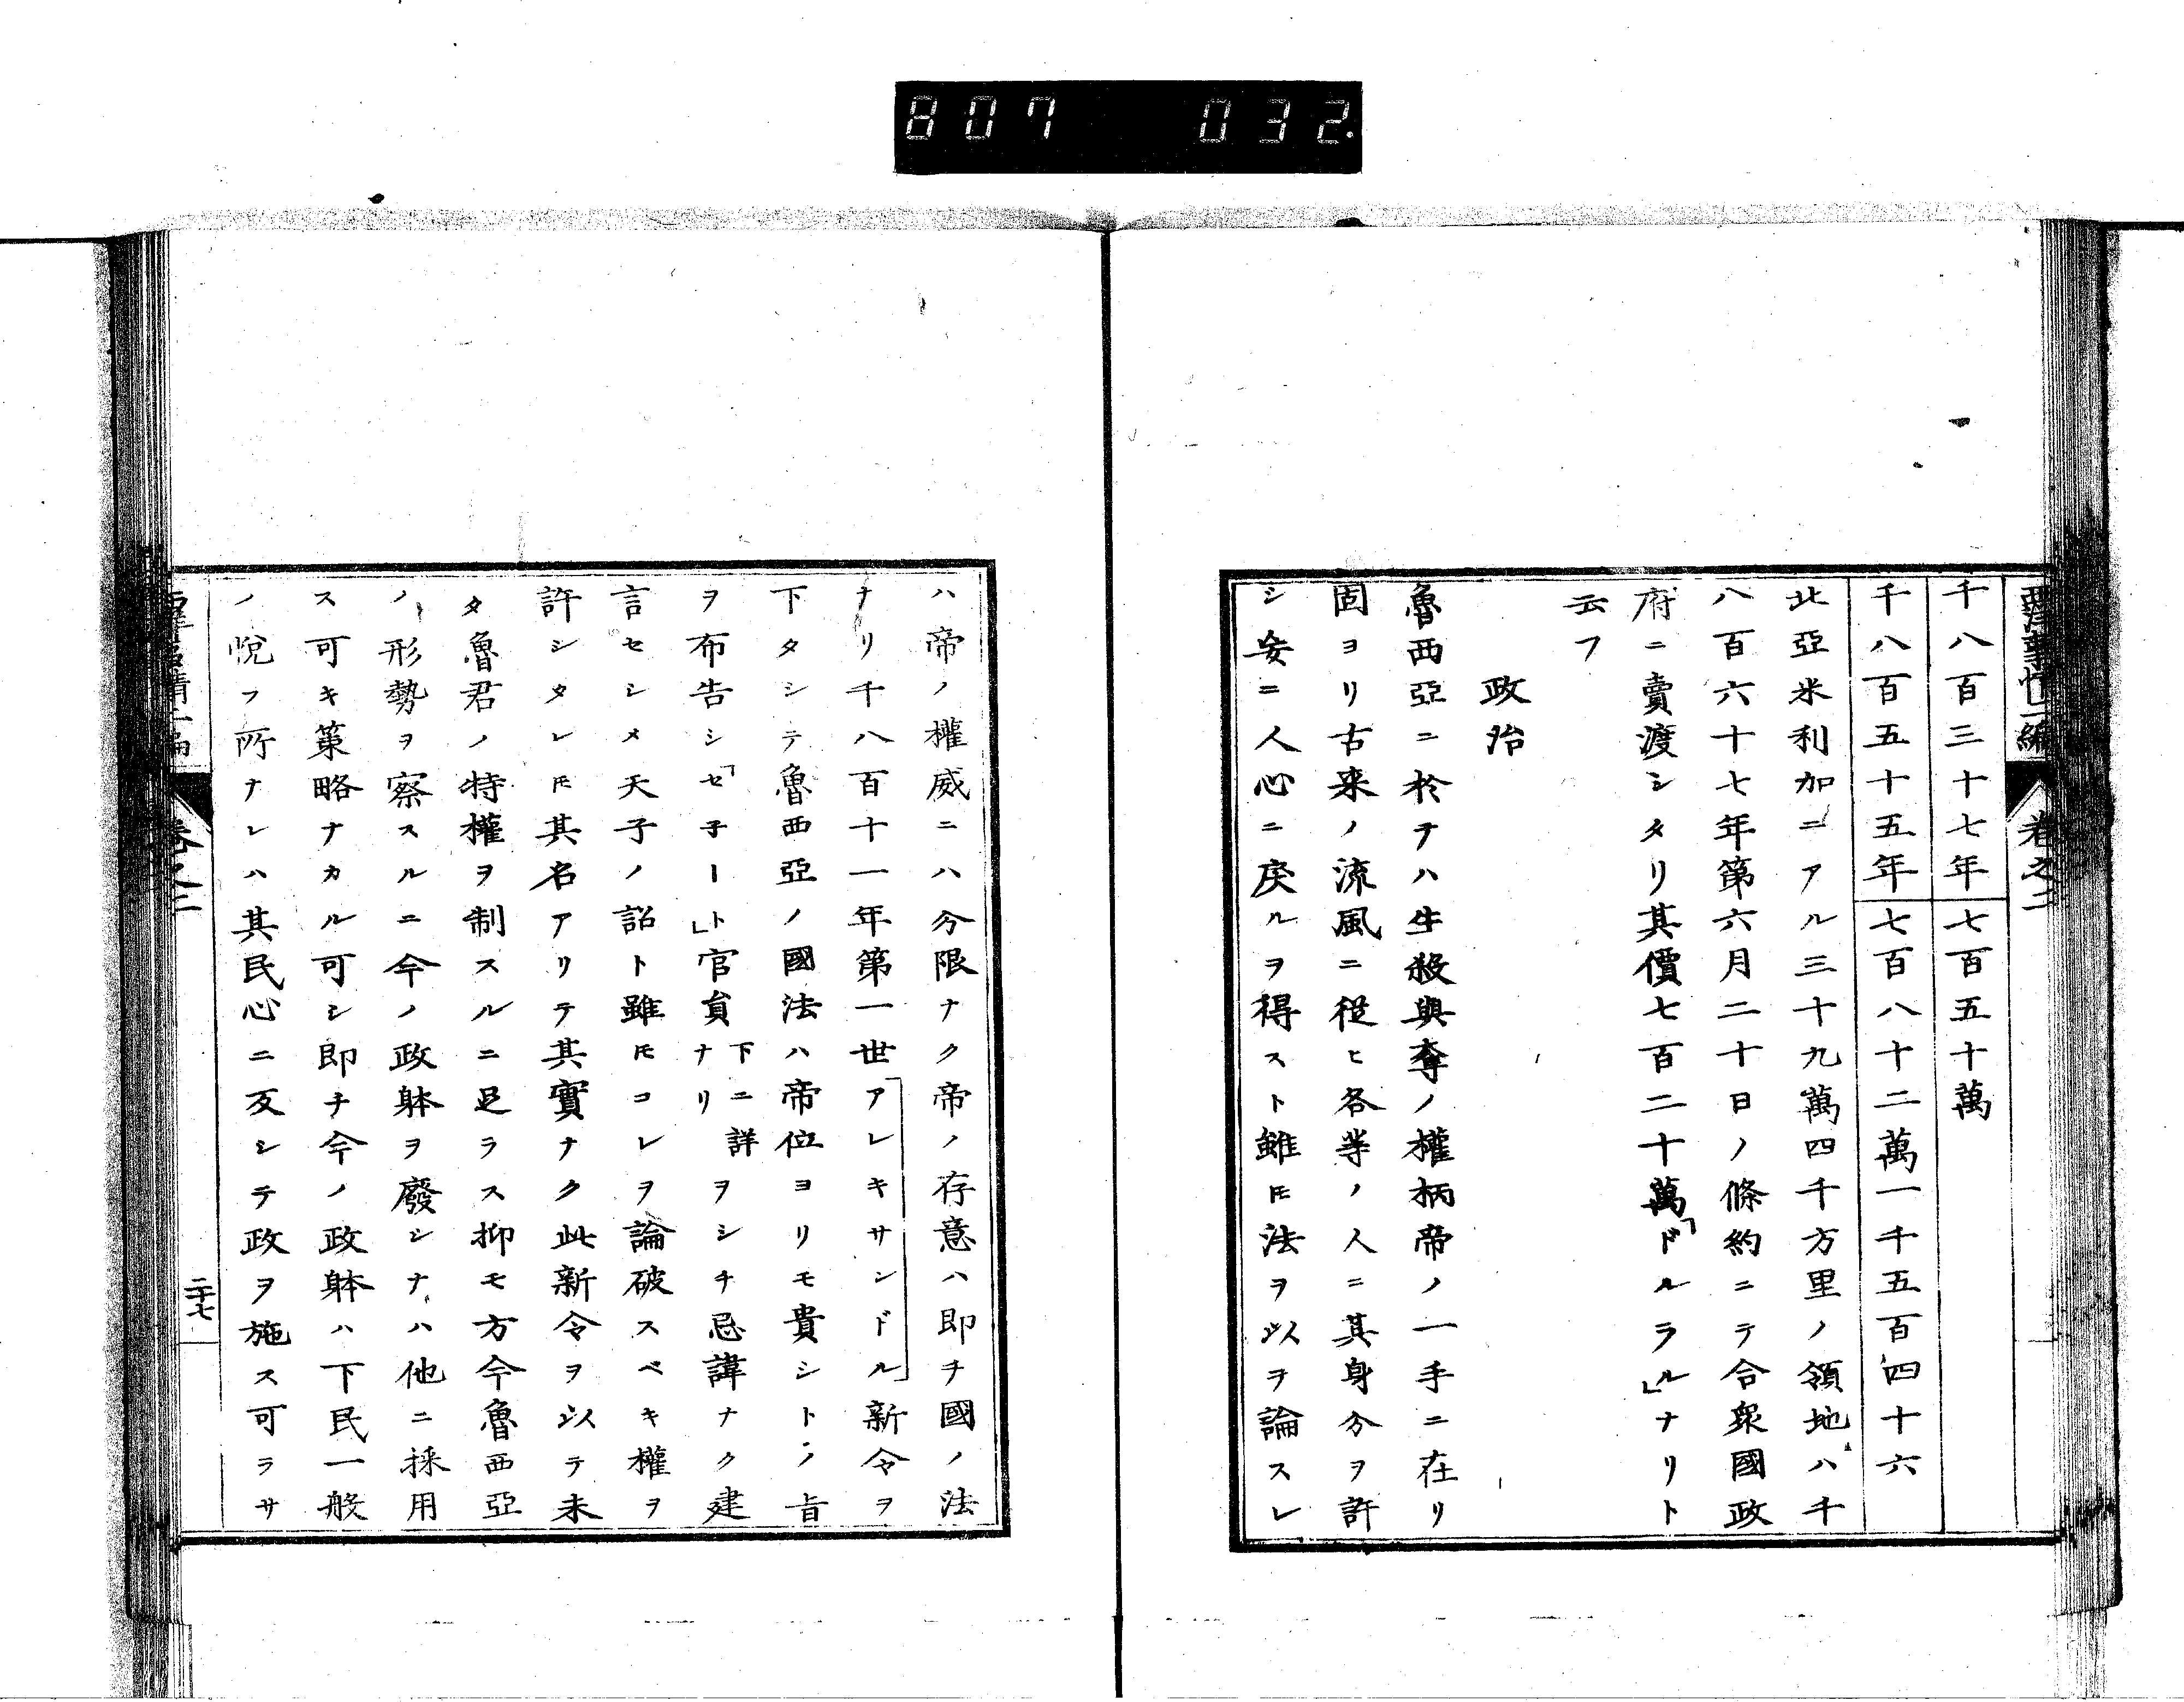 807 032
西洋事情二編 卷之二
千八百三十七年 七百五十萬
千八百五十五年 七百八十二萬一千五百四十六
北亞米利加ニアル三十九萬四千方里ノ領地ハ千
八百六十七年第六月二十日ノ條約ニテ合衆國政
府ニ賣渡シタリ其價七百二十萬「ドルラル」ナリト
云フ
政治
魯西亞ニ於テハ生殺與奪ノ權柄帝ノ一手ニ在リ
固ヨリ古來ノ流風ニ從ヒ各等ノ人ニ其身分ヲ許
シ妄ニ人心ニ戻ルヲ得スト雖𪜈法ヲ以テ論スレ
ハ帝ノ權威ニハ分限ナク帝ノ存意ハ即チ國ノ法
ナリ千八百十一年第一世「アレキサンドル」新令ヲ
下タシテ魯西亞ノ國法ハ帝位ヨリモ貴シトノ旨
ヲ布告シ「セ子ート」官員下ニ詳ナリヲシチ忌諱ナク建
言セシメ天子ノ詔ト雖𪜈コレヲ論破スベキ權ヲ
許シタレ𪜈其名アリテ其實ナク此新令ヲ以テ未
タ魯君ノ特權ヲ制スルニ足ラス抑モ方今魯西亞
ノ形勢ヲ察スルニ今ノ政躰ヲ廢シナハ他ニ採用
ス可キ策略ナカル可シ即チ今ノ政躰ハ下民一般
ノ悅フ所ナレハ其民心ニ反シテ政ヲ施ス可ラサ
西洋事情二編 卷之二 二十七